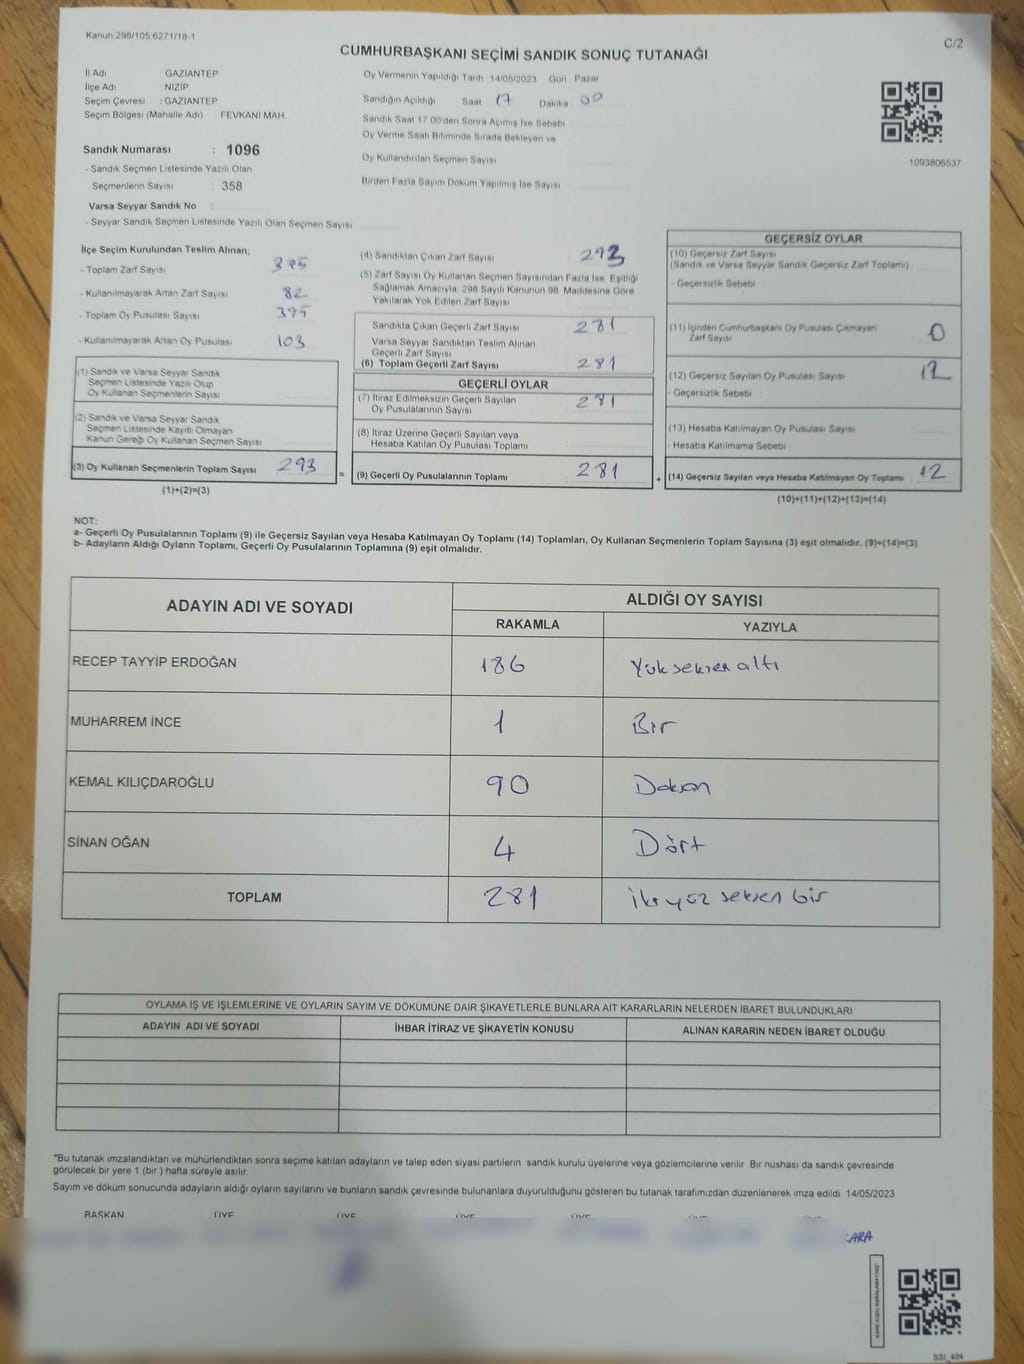 Kanun.298/105.6271/18-1
C/2
CUMHURBAŞKANI SEÇİMİ SANDIK SONUÇ TUTANAĞI
İl Adı GAZIANTEP
İlçe Adı NİZİP
Seçim Çevresi : GAZIANTEP
Seçim Bölgesi (Mahalle Adı) : FEVKANİ MAH.
Sandık Numarası : 1096
- Sandık Seçmen Listesinde Yazılı Olan
Seçmenlerin Sayısı : 358
Varsa Seyyar Sandık No :
- Seyyar Sandık Seçmen Listesinde Yazılı Olan Seçmen Sayısı
Oy Vermenin Yapıldığı Tarih 14/05/2023 Gün Pazar
Sandığın Açıldığı Saat 17 Dakika 00
Sandık Saat 17.00'den Sonra Açımış İse Sebebi
Oy Verme Saati Bitiminde Sırada Bekleyen ve
Oy Kullandırılan Seçmen Sayısı
Birden Fazla Sayım Döküm Yapılmış İse Sayısı
1093806537
İlçe Seçim Kurulundan Teslim Alınan;
- Toplam Zarf Sayısı 375
- Kullanılmayarak Artan Zarf Sayısı 82
- Toplam Oy Pusulası Sayısı
- Kullanılmayarak Artan Oy Pusulası 103
(1) Sandık ve Varsa Seyyar Sandık
Seçmen Listesinde Yazılı Olup
Oy Kullanan Seçmenlerin Sayısı
(2) Sandık ve Varsa Seyyar Sandık
Seçmen Listesinde Kayıtlı Olmayan
Kanun Gereği Oy Kullanan Seçmen Sayısı
(3) Oy Kullanan Seçmenlerin Toplam Sayısı 293
(1)+(2)=(3)
(4) Sandıktan Çıkan Zarf Sayısı 293
(5) Zarf Sayısı Oy Kullanan Seçmen Sayısından Fazla İse, Eşitliği
Sağlamak Amacıyla, 298 Sayılı Kanunun 98. Maddesine Göre
Yakılarak Yok Edilen Zarf Sayısı
Sandıkta Çıkan Geçerli Zarf Sayısı 281
Varsa Seyyar Sandıktan Teslim Alınan
Geçerli Zarf Sayısı
(6) Toplam Geçerli Zarf Sayısı 281
GEÇERLİ OYLAR
(7) İtiraz Edilmeksizin Geçerli Sayılan
Oy Pusulalarının Sayısı 281
(8) İtiraz Üzerine Geçerli Sayılan veya
Hesaba Katılan Oy Pusulası Toplamı
= (9) Geçerli Oy Pusulalarının Toplamı 281
GEÇERSİZ OYLAR
(10) Geçersiz Zarf Sayısı
(Sandık ve Varsa Seyyar Sandık Geçersiz Zarf Toplamı)
- Geçersizlik Sebebi
(11) İçinden Cumhurbaşkanı Oy Pusulası Çıkmayan
Zarf Sayısı 0
(12) Geçersiz Sayılan Oy Pusulası Sayısı 12
- Geçersizlik Sebebi
(13) Hesaba Katılmayan Oy Pusulası Sayısı
- Hesaba Katılmama Sebebi
+ (14) Geçersiz Sayılan veya Hesaba Katılmayan Oy Toplamı 12
(10)+(11)+(12)+(13)=(14)
NOT:
a- Geçerli Oy Pusulalarının Toplamı (9) ile Geçersiz Sayılan veya Hesaba Katılmayan Oy Toplamı (14) Toplamları, Oy Kullanan Seçmenlerin Toplam Sayısına (3) eşit olmalıdır. (9)+(14)=(3)
b- Adayların Aldığı Oyların Toplamı, Geçerli Oy Pusulalarının Toplamına (9) eşit olmalıdır.
ADAYIN ADI VE SOYADI ALDIĞI OY SAYISI
RAKAMLA YAZIYLA
RECEP TAYYİP ERDOĞAN 186 Yükseksen altı
MUHARREM İNCE 1 Bir
KEMAL KILIÇDAROĞLU 90 Doksan
SİNAN OĞAN 4 Dört
TOPLAM 281 ikiyüz seksen bir
OYLAMA İŞ VE İŞLEMLERİNE VE OYLARIN SAYIM VE DÖKÜMÜNE DAİR ŞİKAYETLERLE BUNLARA AİT KARARLARIN NELERDEN İBARET BULUNDUKLARI
ADAYIN ADI VE SOYADI İHBAR İTİRAZ VE ŞİKAYETİN KONUSU ALINAN KARARIN NEDEN İBARET OLDUĞU
*Bu tutanak imzalandıktan ve mühürlendikten sonra seçime katılan adayların ve talep eden siyasi partilerin sandık kurulu üyelerine veya gözlemcilerine verilir. Bir nüshası da sandık çevresinde
görülecek bir yere 1 (bir) hafta süreyle asılır.
Sayım ve döküm sonucunda adayların aldığı oyların sayılarını ve bunların sandık çevresinde bulunanlara duyurulduğunu gösteren bu tutanak tarafımızdan düzenlenerek imza edildi. 14/05/2023
BAŞKAN ÜYE ÜYE ÜYE ÜYE ÜYE ÜYE